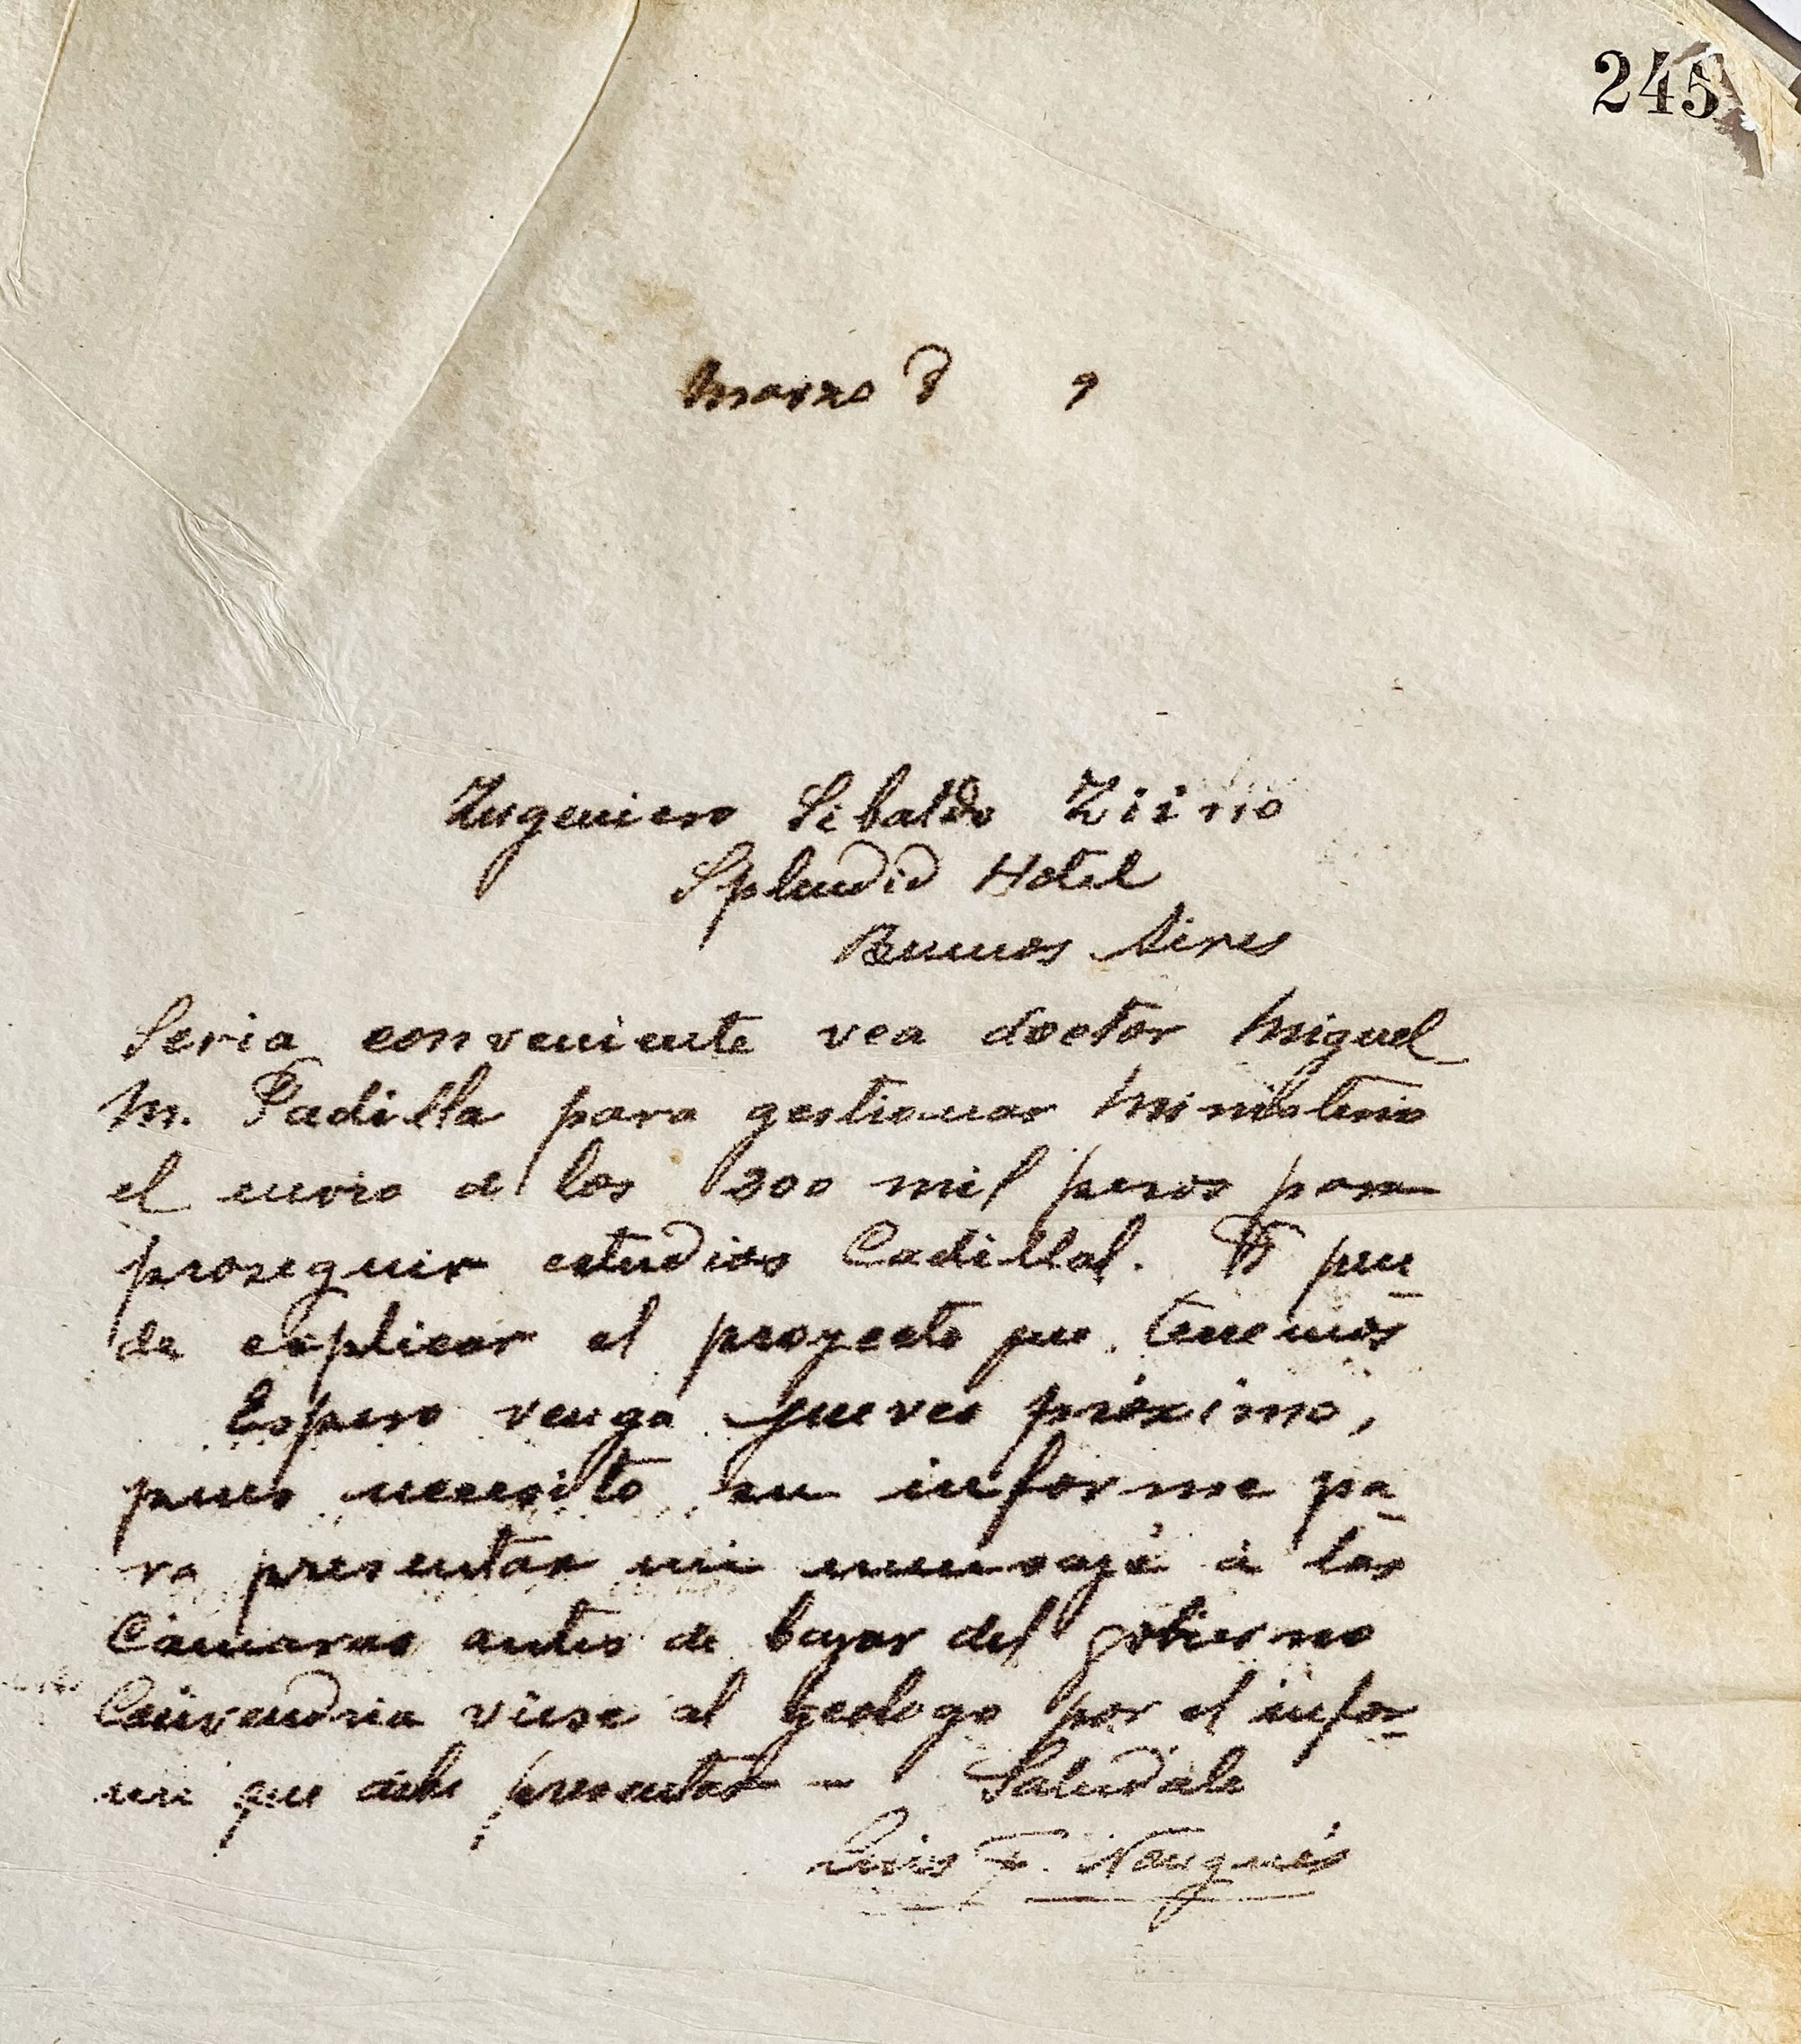 245
Marzo 8 9
Ingeniero Sibaldo Ziino
Splendid Hotel
Buenos Aires
Seria conveniente vea doctor Miguel
M. Padilla para gestionar Ministerio
el envio de los 200 mil pesos para
proseguir estudios Cadillal. Vd pue-
de explicar el proyecto que tenemos
Espero venga jueves próximo,
pues necesito su informe pa-
ra presentar mi mensaje á las
Cámaras antes de bajar del gobierno
Convendria viese al geologo por el infor-
me que debe presentar - Saludale
Luis F. Nougués